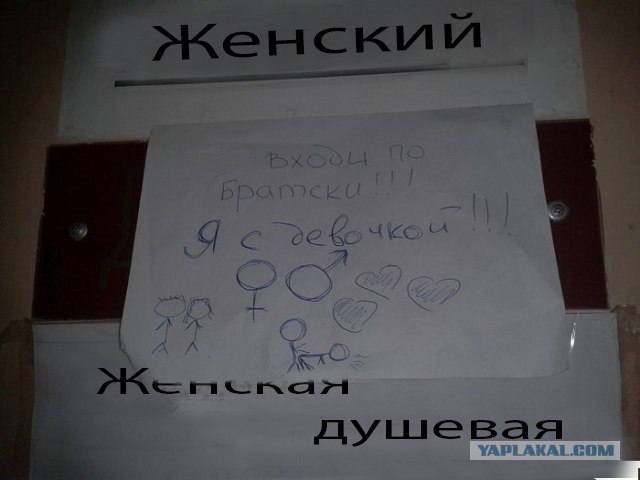 Женский
входи по
Братски!!!
Я с девочкой!!!
Женская
душевая
YAPLAKAL.COM